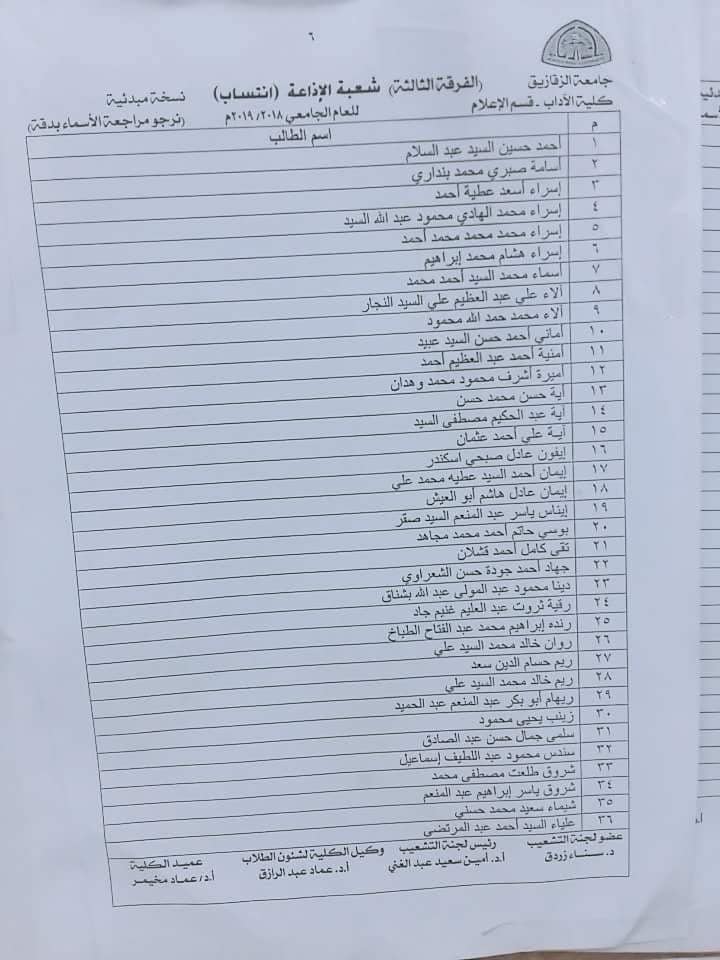 ٦
جامعة الزقازيق
(الفرقة الثالثة) شعبة الإذاعة (انتساب)
نسخة مبدئية
كلية الآداب - قسم الإعلام
للعام الجامعي ٢٠١٨/٢٠١٩م
(نرجو مراجعة الأسماء بدقة)
م اسم الطالب
١ أحمد حسين السيد عبد السلام
٢ أسامة صبري محمد بنداري
٣ إسراء أسعد عطية أحمد
٤ إسراء محمد الهادي محمود عبد الله السيد
٥ إسراء محمد محمد محمد أحمد
٦ إسراء هشام محمد إبراهيم
٧ أسماء محمد السيد أحمد محمد
٨ آلاء علي عبد العظيم علي السيد النجار
٩ آلاء محمد حمد الله محمود
١٠ أماني أحمد حسن السيد عبيد
١١ أمنية أحمد عبد العظيم أحمد
١٢ أميرة أشرف محمود محمد وهدان
١٣ آية حسن محمد حسن
١٤ آية عبد الحكيم مصطفى السيد
١٥ آية علي أحمد عثمان
١٦ إيفون عادل صبحي اسكندر
١٧ إيمان أحمد السيد عطيه محمد علي
١٨ إيمان عادل هاشم أبو العيش
١٩ إيناس ياسر عبد المنعم السيد صقر
٢٠ بوسي حاتم أحمد محمد مجاهد
٢١ تقى كامل أحمد قشلان
٢٢ جهاد أحمد جودة حسن الشعراوي
٢٣ دينا محمود عبد المولى عبد الله بشناق
٢٤ رقية ثروت عبد العليم غنيم جاد
٢٥ رنده إبراهيم محمد عبد الفتاح الطباخ
٢٦ روان خالد محمد السيد علي
٢٧ ريم حسام الدين سعد
٢٨ ريم خالد محمد السيد علي
٢٩ ريهام أبو بكر عبد المنعم عبد الحميد
٣٠ زينب يحيى محمود
٣١ سلمى جمال حسن عبد الصادق
٣٢ سندس محمود عبد اللطيف إسماعيل
٣٣ شروق طلعت مصطفى محمد
٣٤ شروق ياسر إبراهيم عبد المنعم
٣٥ شيماء سعيد محمد حسني
٣٦ علياء السيد أحمد عبد المرتضى
عضو لجنة التشعيب رئيس لجنة التشعيب وكيل الكلية لشئون الطلاب عميد الكلية
د. سناء زردق أ.د. أمين سعيد عبد الغني أ.د. عماد عبد الرازق أ.د/ عماد مخيمر